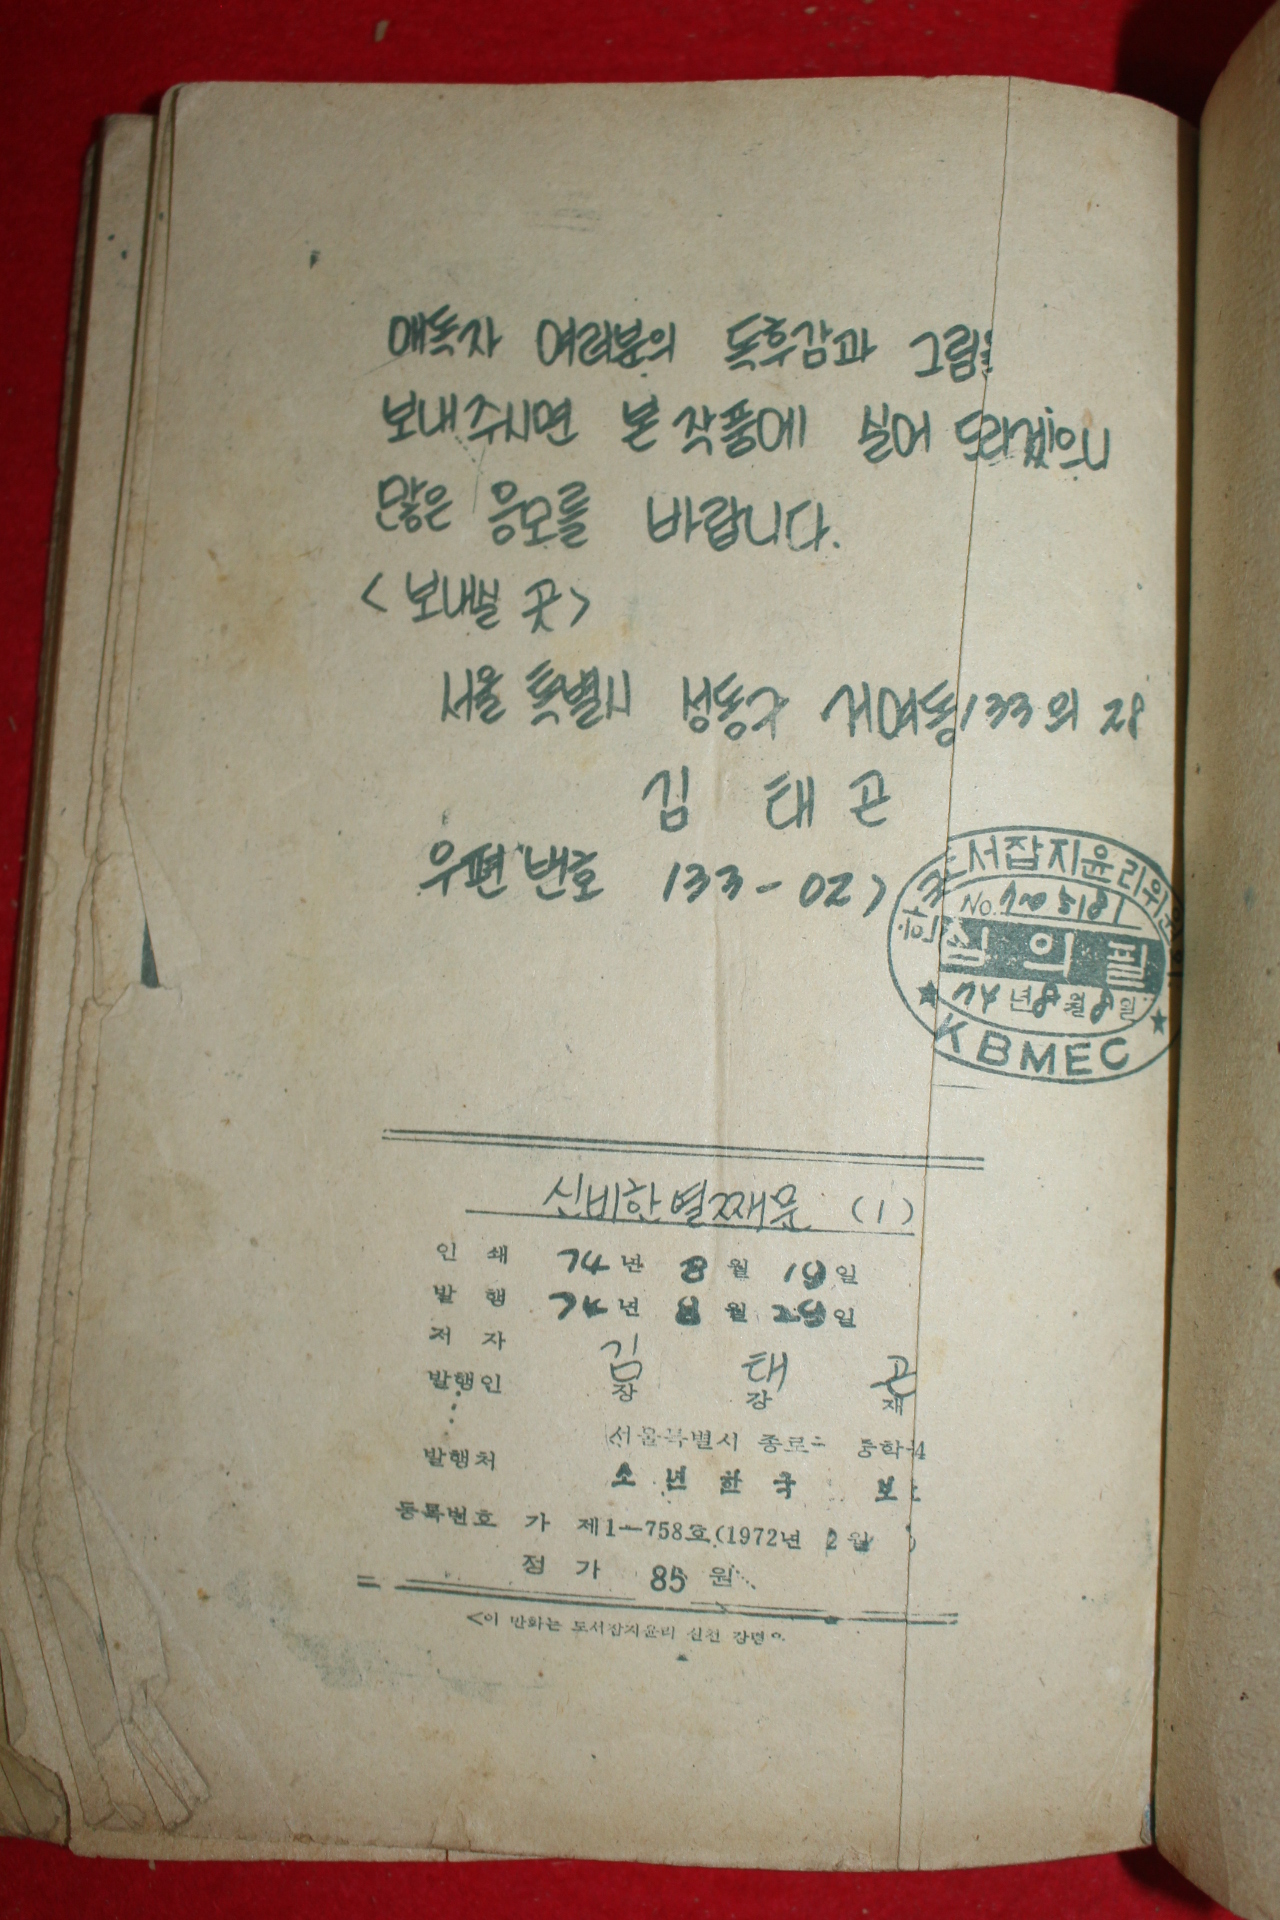 애독자 여러분의 독후감과 그림을
보내주시면 본 작품에 실어 드리겠으니
많은 응모를 바랍니다.
<보내실 곳>
서울 특별시 성동구 거여동 133의 28
김 태 곤
우편번호 133-027
한국도서잡지윤리위원회
No.
심의필
74년 8월 8일
KBMEC
신비한 별째문 (1)
인 쇄 74년 8월 19일
발 행 74년 8월 29일
저 자 김 태 곤
발행인 장 강 재
서울특별시 종로구 중학 4
발행처 소 년 한 국 보
등록번호 가 제1-758호(1972년 2월
정 가 85 원
<이 만화는 도서잡지윤리 실천 강령